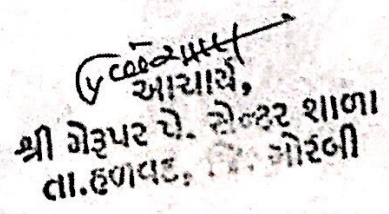 આચાર્ય,
શ્રી ગેરૂપર પે. સેન્ટર શાળા
તા.હળવદ, જિ. મોરબી